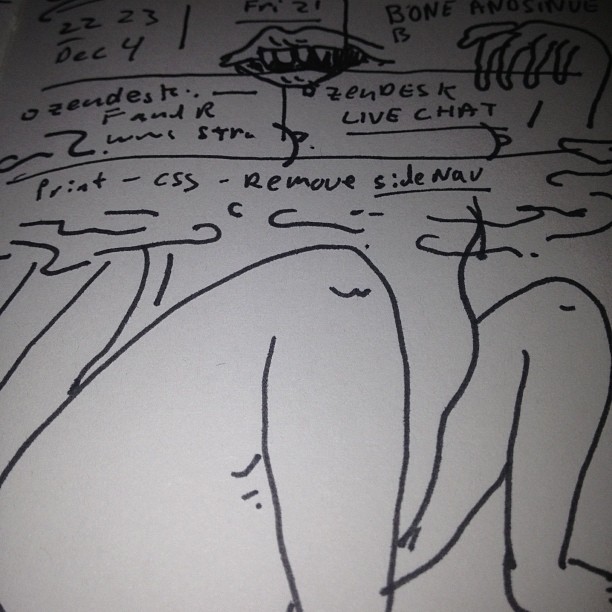 22 23
Dec 4
Fri 21
BONE ANDSINUE
B
zendesk
F and R
zenDESK
LIVE CHAT
Print - CSS - Remove sideNav